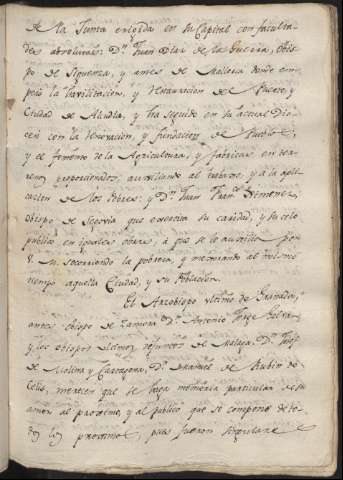 de la Junta erigida en su Capital con faculta-
des absolutas: Dn. Juan Diaz de la Guerra, obis-
po de Siguenza, y antes de Mallorca donde em-
pezó la havilitacion, y restauracion del Puerto, y
Ciudad de Alcudia, y ha seguido en su actual Dio-
cesi con la renovacion, y fundacion de Pueblos,
y el fomento de la Agricultura, y fabricas en ter-
renos proporcionados, auxiliando al trabajo, y a la apli-
cacion de los Pobres: y Dn. Juan Franco. Ximenez,
obispo de Segovia que exercita su caridad, y su celo
publico en iguales obras, á que se le auxilia por
V. M. socorriendo la pobreza, y mejorando al mismo
tiempo aquella Ciudad, y su Poblacion.
El Arzobispo ultimo de Granada,
antes obispo de Zamora Dn. Antonio Jorge Galvan,
y los obispos ultimos de Malaga, Dn. Josef
de Molina y Cartagena, Dn. Manuel de Rubin de
Celis, merecen que se haga memoria particular de su
amor al proximo, y al publico que se compone de to-
dos los proximos, pues fueron